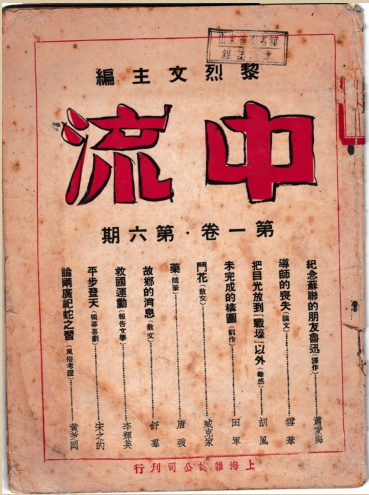 黎烈文主編
中流
第一卷·第六期
紀念蘇聯的朋友魯迅(譯作)……蕭愛梅
導師的喪失(論文)……雪葦
把目光放到「戰壕」以外(雜感)……胡風
未完成的構圖(創作)……田軍
鬥花(散文)……臧克家
藥(隨筆)……唐弢
故鄉的消息(散文)……舒羣
救國運動(報告文學)……李輝英
平步登天(獨幕喜劇)……宋之的
論兩廣祀蛇之習(風俗考證)……黃芝岡
上海雜誌公司刊行